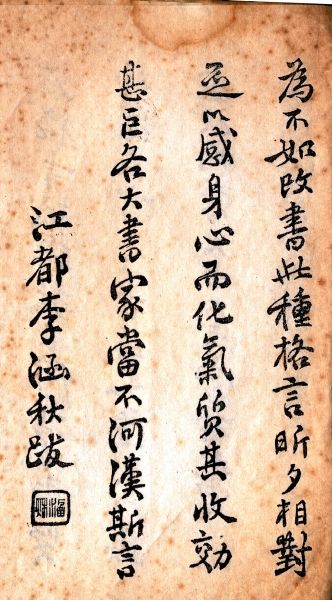 為不如改書此種格言昕夕相對
足以感身心而化氣質其收効
甚巨各大書家當不河漢斯言
江都李涵秋跋